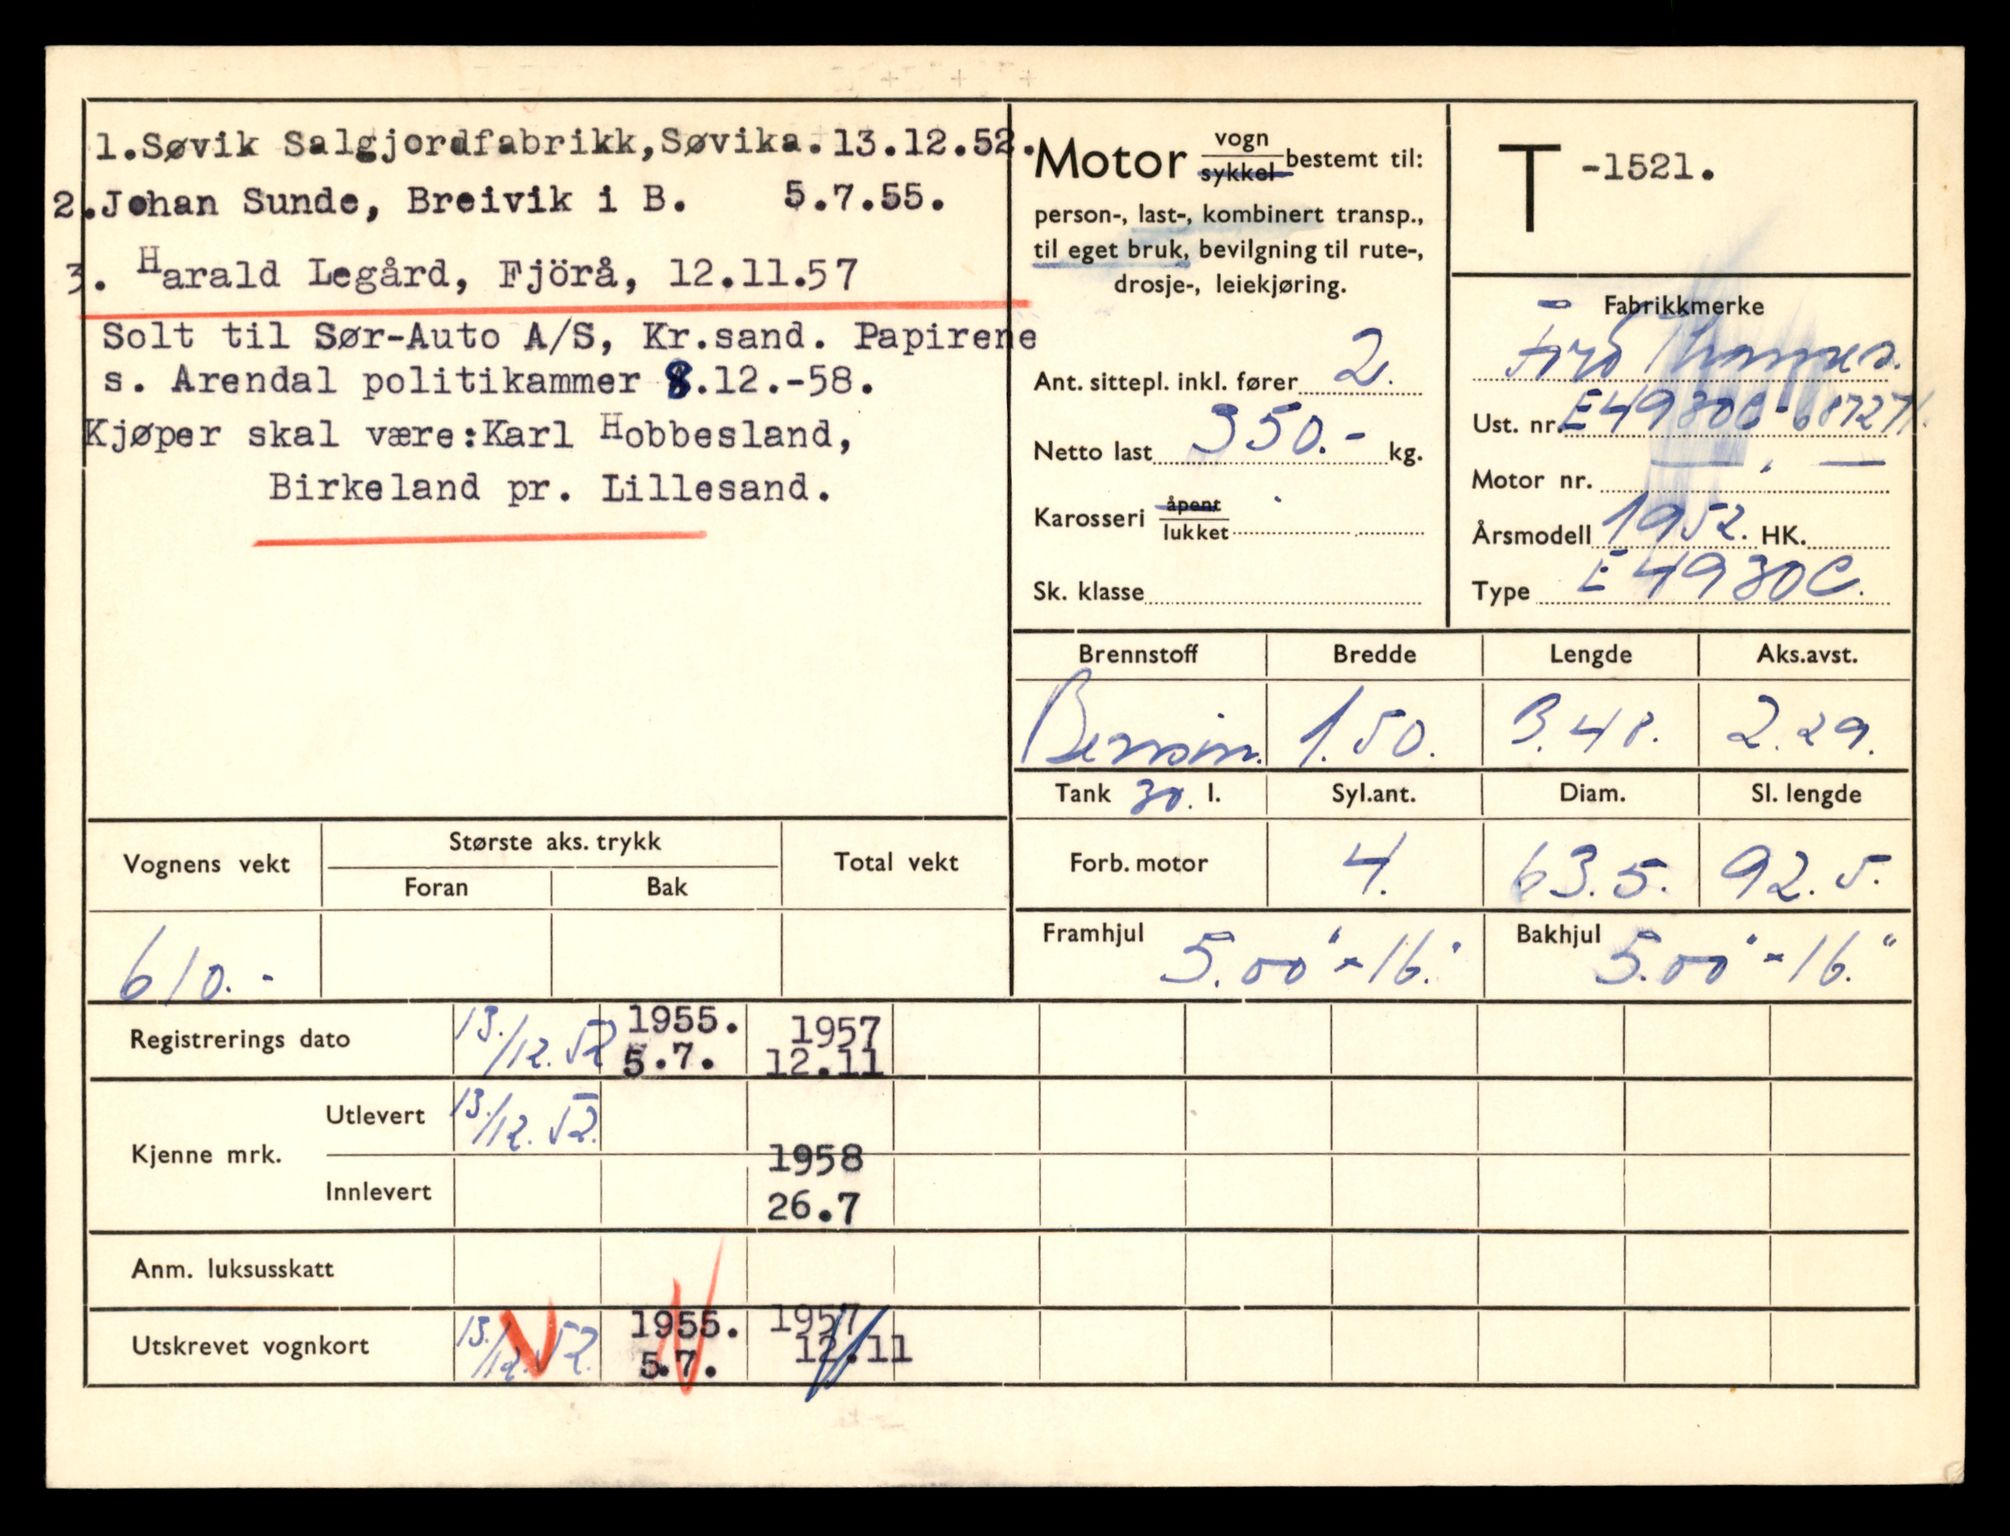 1.Søvik Salgjordfabrikk,Søvika.13.12.52.
2.Johan Sunde, Breivik i B. 5.7.55.
3. Harald Legård, Fjörå, 12.11.57
Solt til Sør-Auto A/S, Kr.sand. Papirene
s. Arendal politikammer 8.12.-58.
Kjøper skal være:Karl Hobbesland,
Birkeland pr. Lillesand.
Motor vogn sykkel bestemt til:
person-, last-, kombinert transp.,
til eget bruk, bevilgning til rute-,
drosje-, leiekjøring.
Ant. sittepl. inkl. fører 2.
Netto last 350.- kg.
Karosseri åpent lukket
Sk. klasse
T -1521.
Fabrikkmerke
Ford Thames.
Ust. nr. E4930C-687271.
Motor nr. — " —
Årsmodell 1952. HK.
Type E4930C.
Brennstoff Bredde Lengde Aks.avst.
Bensin. 1.50. 3.48. 2.29.
Tank 30. l. Syl.ant. Diam. Sl. lengde
Forb. motor 4. 63.5. 92.5.
Framhjul 5.00"-16." Bakhjul 5.00"-16."
Vognens vekt Største aks. trykk Total vekt
Foran Bak
610.-
Registrerings dato 13./12.52 1955. 5.7. 1957 12.11
Kjenne mrk. Utlevert 13./12.52.
Innlevert 1958 26.7
Anm. luksusskatt
Utskrevet vognkort 13./12.52. 1955. 5.7. 1957 12.11